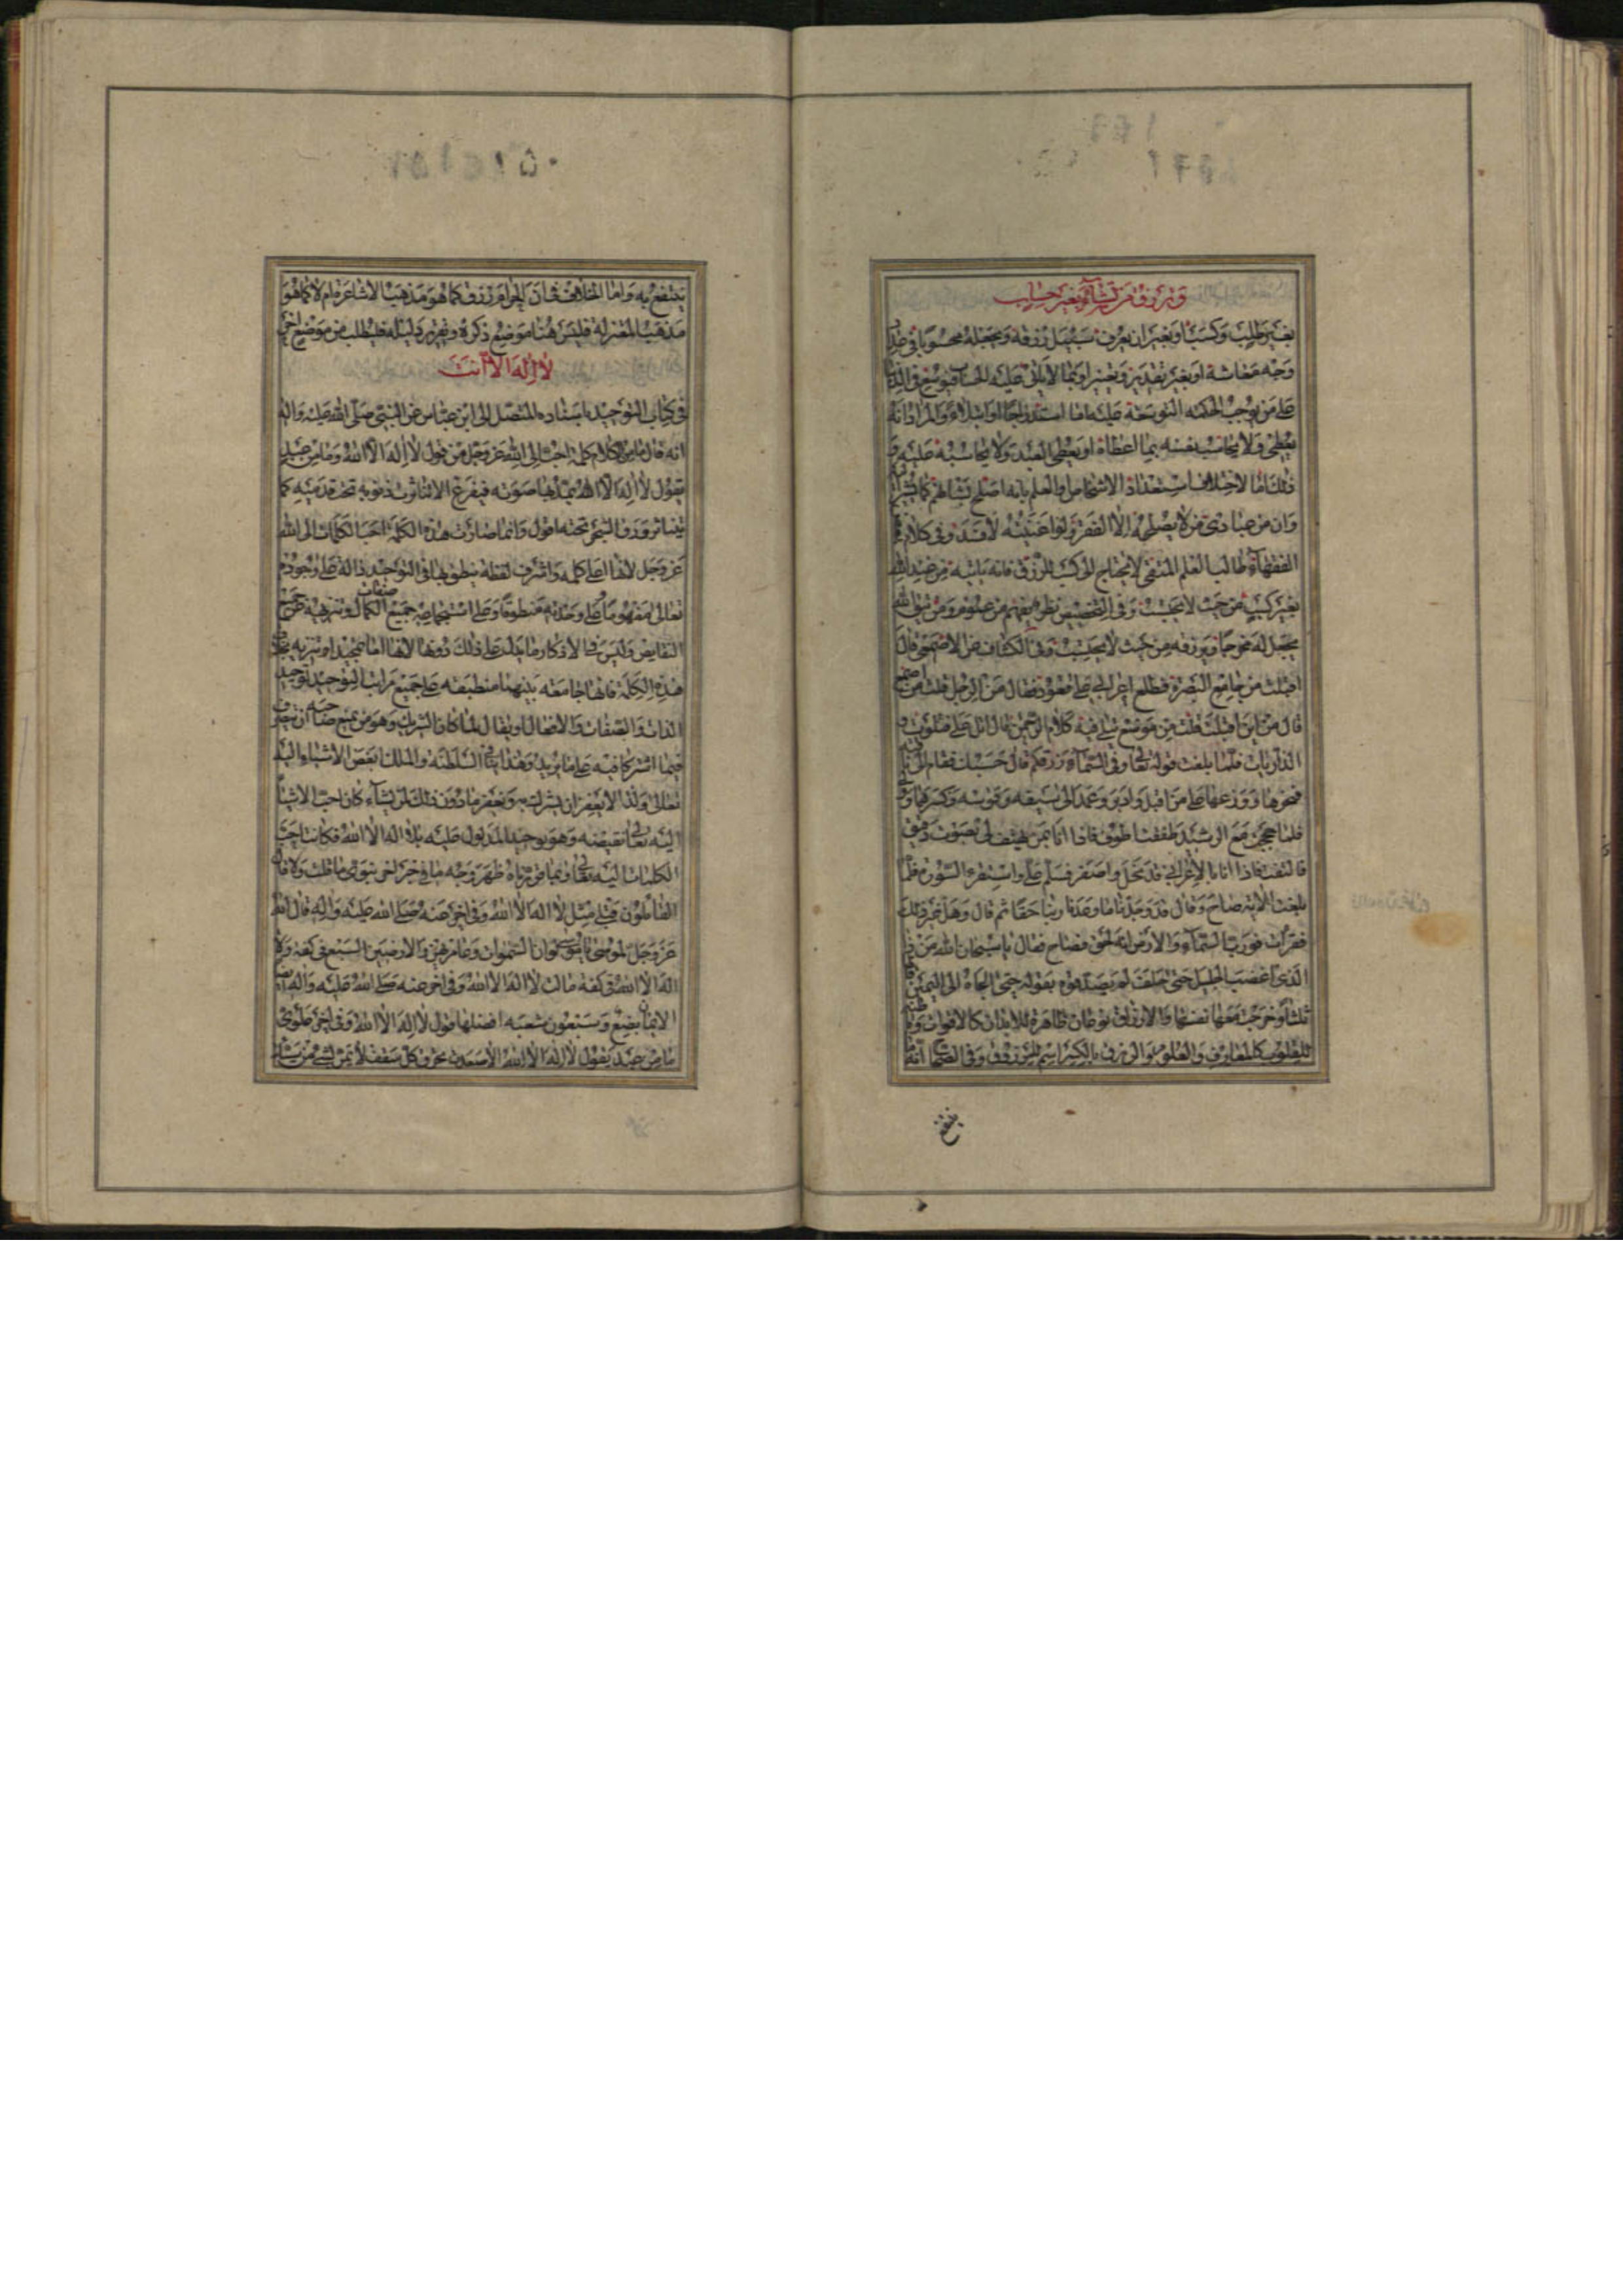 وترزق من تشاء بغير حساب
بغير طلب وكسب او بغير ان يعرف سبيل رزقه ويجعله محسوبا في
وجه معاشه او بغير تقدير وتقتير
على من يوجب الحكمة التوسعة عليه اما استدراجا او ابتلاء والمراد انه
يعطي ولا يحاسب نفسه بما اعطاه او يعطي العبد ولا يحاسبه عليه و
ذلك اما لاختلاف استعداد الاشخاص والعلم بانه اصلح بشانهم كما
وان من عبادي من لا يصلحه الا الفقر ولو اغنيته لافسد وفي كلام
الفقهاء طالب العلم المتقي لا يحتاج الى كسب للرزق فانه ياتيه من عند الله
بغير كسب من حيث لا يحتسب وفي التخصيص نظر يفهم من عموم ومن يتق الله
يجعل له مخرجا ويرزقه من حيث لا يحتسب وفي الكشاف عن الاصمعي قال
اقبلت من جامع البصرة فطلع اعرابي على قعود فقال من الرجل قلت من اصمع
قال من اين اقبلت قلت من موضع يتلى فيه كلام الرحمن قال اتل علي فتلوت و
الذاريات فلما بلغت قوله تعالى وفي السماء رزقكم قال حسبك فقام الى ناقته
فنحرها ووزعها على من اقبل وادبر وعمد الى سيفه وقوسه وكسرهما وولى
فلما حججت مع الرشيد طفقت اطوف فاذا انا بمن يهتف لي بصوت دقيق
فالتفت فاذا انا بالاعرابي قد نحل واصفر فسلم علي واستقرء السورة فلما
بلغت الاية صاح وقال قد وجدنا ما وعدنا ربنا حقا ثم قال وهل غير ذلك
فقرات فورب السماء والارض انه لحق فصاح فقال يا سبحان الله من ذا
الذي اغضب الجليل حتى حلف لم يصدقوه بقوله حتى الجاه الى اليمين قالها
ثلثا وخرجت معها نفسه والارزاق نوعان ظاهرة للابدان كالاقوات وباطنة
للقلوب كالمعارف والعلوم والرزق بالكسر اسم للمرزوق وفي الصحاح انه ما
ينتفع
ينتفع به واما الخلاف في ان الحرام رزق كما هو مذهب الاشاعرة ام لا كما هو
مذهب المعتزلة فليس هنا موضع ذكره وتقرير دليله فليطلب من موضع اخر
لا اله الا انت
في كتاب التوحيد باسناده المتصل الى ابن عباس عن النبي صلى الله عليه واله
انه قال ما من الكلام كلمة احب الى الله عز وجل من قول لا اله الا الله وما من عبد
يقول لا اله الا الله يمد بها صوته فيفرغ الا تناثرت ذنوبه تحت قدميه كما
يتناثر ورق الشجر تحته اقول وانما صارت هذه الكلمة احب الكلمات الى الله
عز وجل لانها اعلى كلمة واشرف لفظة نطق بها في التوحيد دالة على وجوده
تعالى مفهوما وعلى وحدانيته منطوقا وعلى استجماعه جميع صفات الكمال وتنزيهه عن جميع
النقايص وليس في الاذكار ما يدل على ذلك دونها لانها اما تمجيد او تنزيه بخلاف
هذه الكلمة فانها جامعة بينهما منطبقة على جميع مراتب التوحيد توحيد
الذات والصفات والافعال او يقال لما كان الشريك وهو من يمنع صاحبه ان يتصرف
فيما اشتركا فيه على ما يريد وهذا ينافي السلطنة والملك ابغض الاشياء اليه
تعالى ولذا لا يغفر ان يشرك به ويغفر ما دون ذلك لمن يشاء كان احب الاشياء
اليه تعالى نقيضه وهو توحيد المدلول عليه بلا اله الا الله فكانت احب
الكلمات اليه تعالى وبما قررناه ظهر وجه ما في خبر اخر نبوي ما قلت ولا قال
القائلون قبلي مثل لا اله الا الله وفي اخر عنه صلى الله عليه واله قال الله
عز وجل لموسى يا موسى لو ان السموات وعامريهن والارضين السبع في كفة ولا
اله الا الله في كفة مالت لا اله الا الله وفي اخر عنه صلى الله عليه واله
الايمان بضع وسبعون شعبة افضلها قول لا اله الا الله وفي اخر علوي
ما من عبد يقول لا اله الا الله الا صعدت تخرق كل سقف لا تمر بشيء من سيئاته